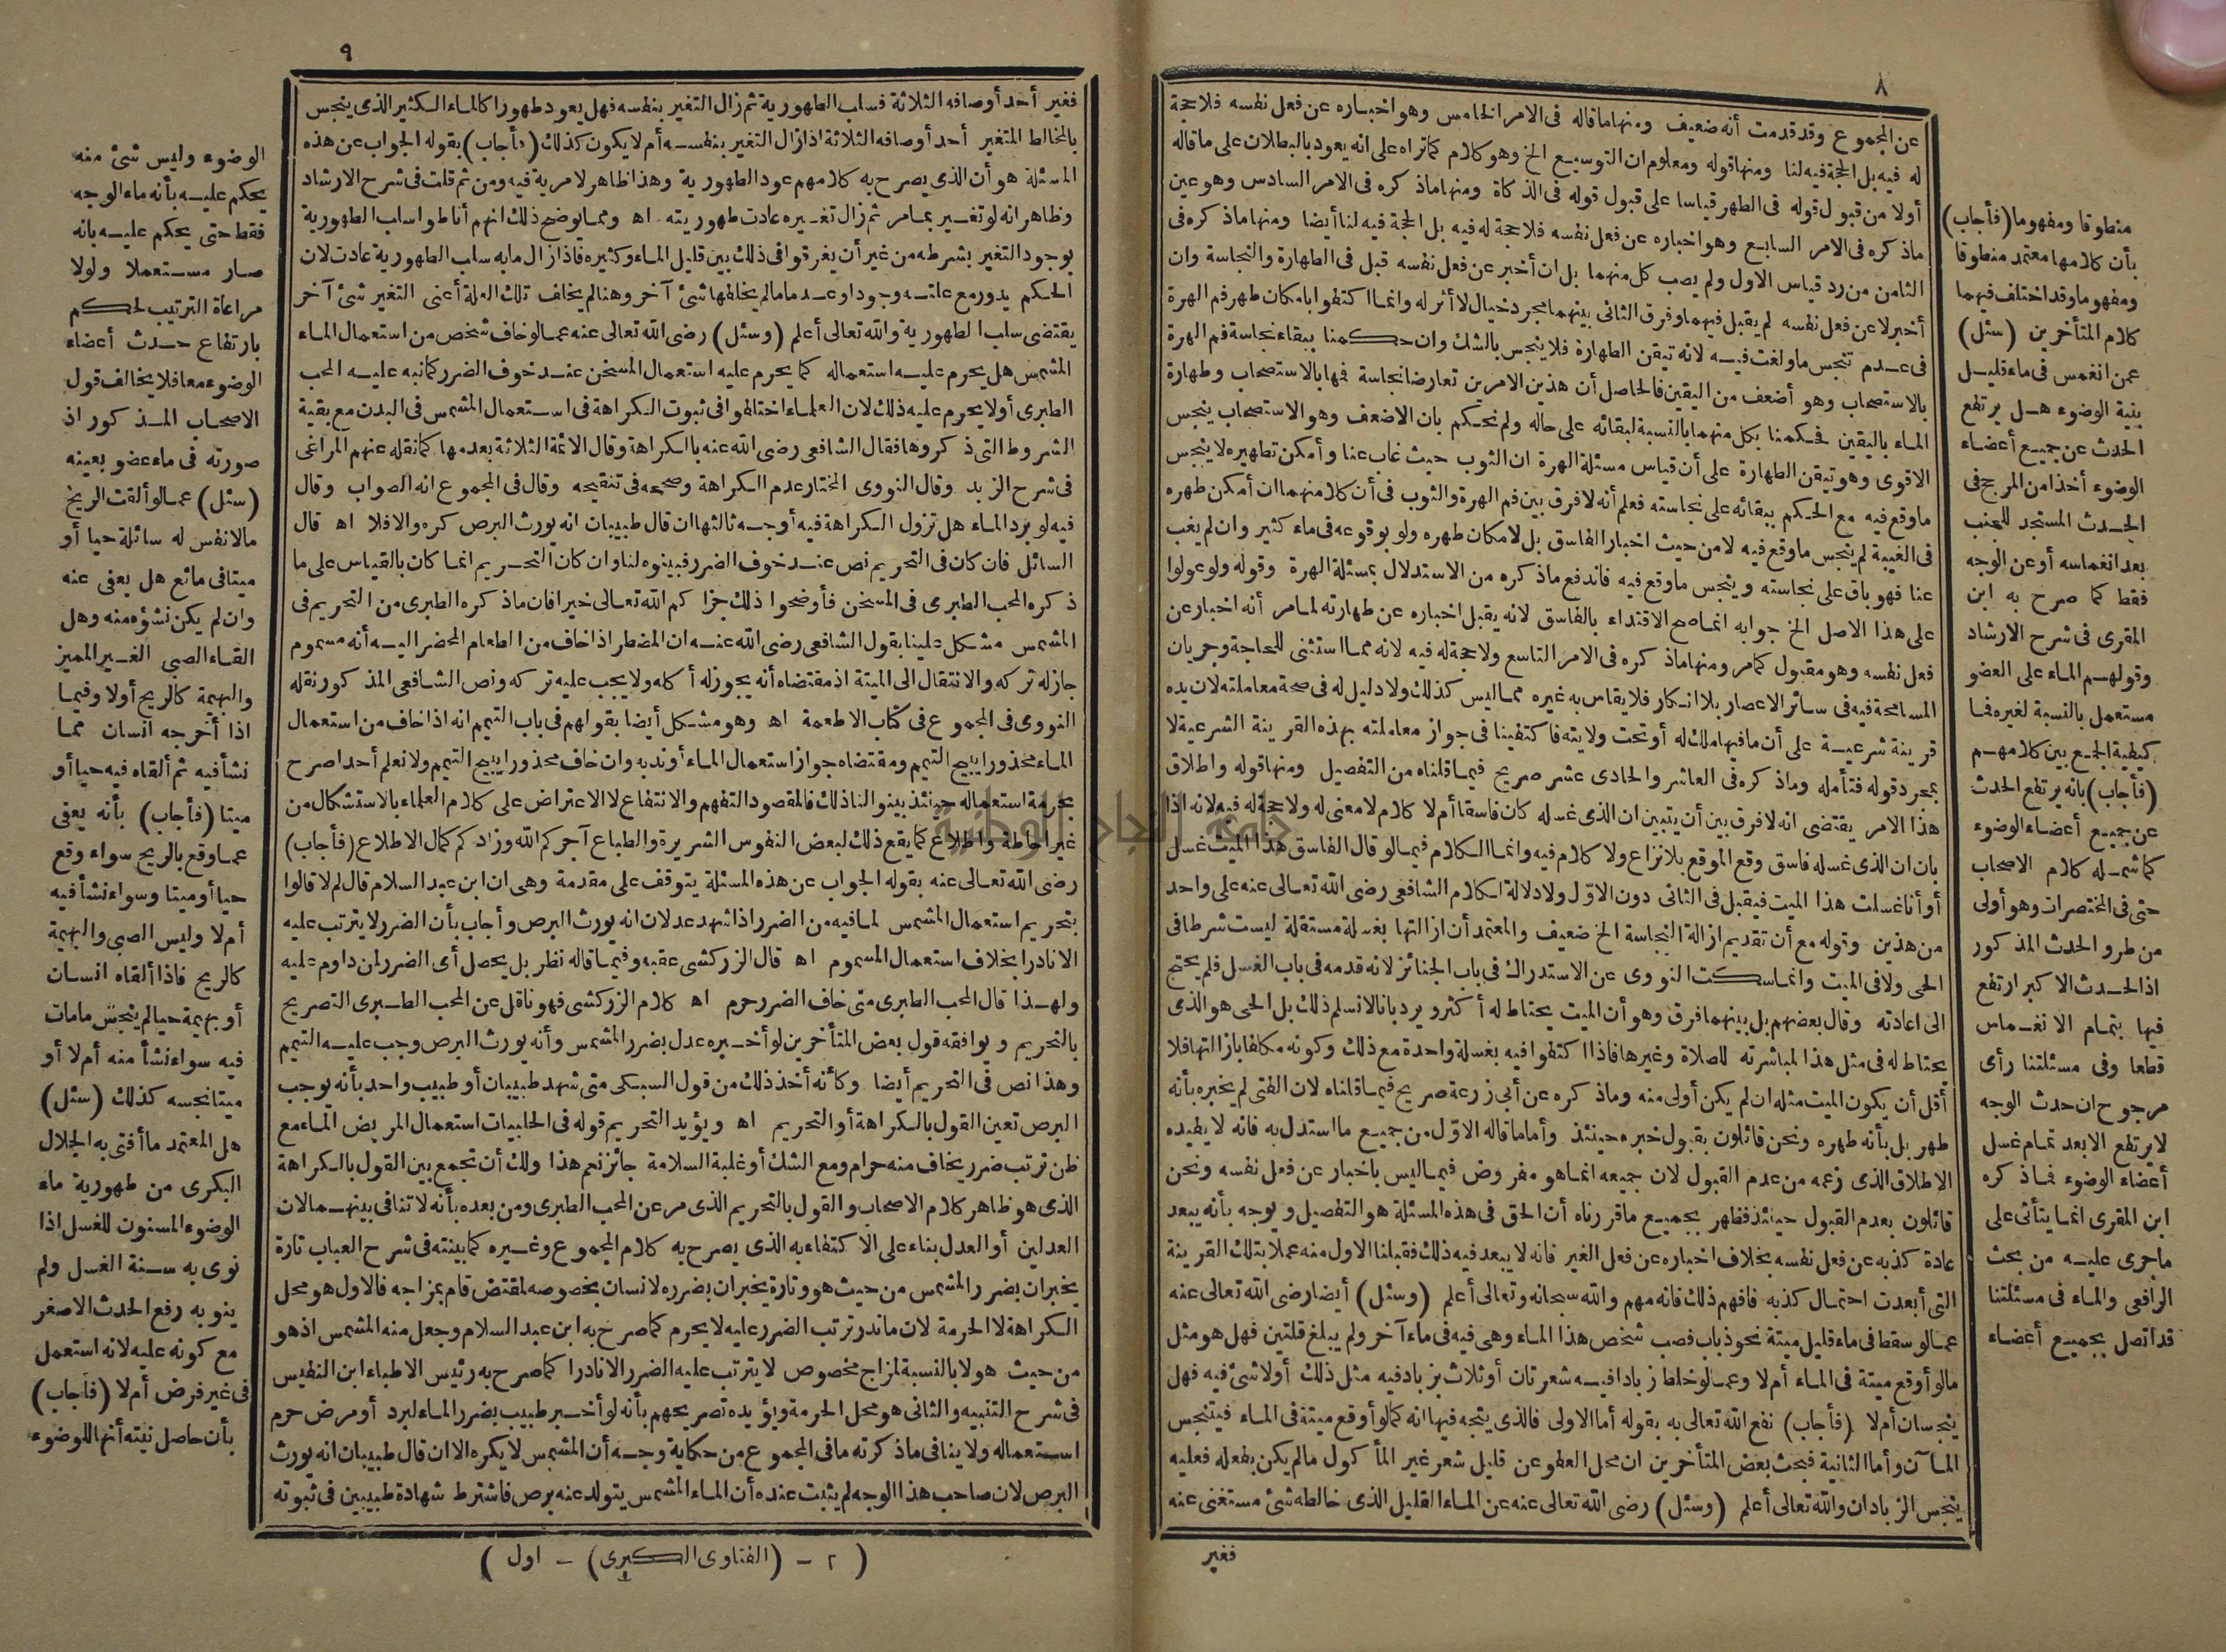 ٨
عن المجموع وقد قدمت أنه ضعيف ومنها ما قاله فى الامر الخامس وهو اخباره عن فعل نفسه فلا حجة
له فيه بل الحجة فيه لنا ومنها قوله ومعلوم ان التوسيع الخ وهو كلام كما تراه على انه يعود بالبطلان على ما قاله
أولا من قبول قوله فى الطهر قياسا على قبول قوله فى الذكاة ومنها ما ذكره فى الامر السادس وهو عين
ما ذكره فى الامر السابع وهو اخباره عن فعل نفسه فلا حجة له فيه بل الحجة فيه لنا أيضا ومنها ما ذكره فى
الثامن من رد قياس الاول ولم يصب كل منهما بل ان أخبر عن فعل نفسه قبل فى الطهارة والنجاسة وان
أخبر لا عن فعل نفسه لم يقبل فيهما وفرق الثانى بينهما مجرد خيال لا أثر له وانما اكتفوا بامكان طهر فم الهرة
فى عدم تنجس ما ولغت فيه لانه تيقن الطهارة فلا ينجس بالشك وان حكمنا ببقاء نجاسة فم الهرة
بالاستصحاب وهو أضعف من اليقين فالحاصل أن هذين الامرين تعارضا نجاسة فمها بالاستصحاب وطهارة
الماء باليقين فحكمنا بكل منهما بالنسبة لبقائه على حاله ولم نحكم بان الاضعف وهو الاستصحاب ينجس
الاقوى وهو تيقن الطهارة على أن قياس مسئلة الهرة ان الثوب حيث غاب عنا وأمكن تطهيره لا ينجس
ما وقع فيه مع الحكم ببقائه على نجاسته فعلم أنه لا فرق بين فم الهرة والثوب فى أن كلا منهما ان أمكن طهره
فى الغيبة لم ينجس ما وقع فيه لا من حيث اخبار الفاسق بل لامكان طهره ولو بوقوعه فى ماء كثير وان لم يغب
عنا فهو باق على نجاسته وينجس ما وقع فيه فاندفع ما ذكره من الاستدلال بمسئلة الهرة وقوله ولو عولوا
على هذا الاصل الخ جوابه انما صح الاقتداء بالفاسق لانه يقبل اخباره عن طهارته لما مر أنه اخبار عن
فعل نفسه وهو مقبول كما مر ومنها ما ذكره فى الامر التاسع ولا حجة له فيه لانه مما استثنى للحاجة وجريان
المسامحة فيه فى سائر الاعصار بلا انكار فلا يقاس به غيره مما ليس كذلك ولا دليل له فى صحة معاملته لان يده
قرينة شرعية على أن ما فيها ملك له أو تحت ولايته فاكتفينا فى جواز معاملته بهذه القرينة الشرعية لا
بمجرد قوله فتأمله وما ذكره فى العاشر والحادى عشر صريح فيما قلناه من التفصيل ومنها قوله واطلاق
هذا الامر يقتضى انه لا فرق بين أن يتبين ان الذى غسله كان فاسقا أم لا كلام لا معنى له ولا حجة له فيه لانه اذا
بان ان الذى غسله فاسق وقع الموقع بلا نزاع ولا كلام فيه وانما الكلام فيما لو قال الفاسق هذا الميت غسل
أو أنا غسلت هذا الميت فيقبل فى الثانى دون الاول ولا دلالة لكلام الشافعى رضى الله تعالى عنه على واحد
من هذين وقوله مع أن تقديم ازالة النجاسة الخ ضعيف والمعتمد أن ازالتها بغسلة مستقلة ليست شرطا فى
الحى ولا فى الميت وانما سكت النووى عن الاستدراك فى باب الجنائز لانه قدمه فى باب الغسل فلم يحتج
الى اعادته وقال بعضهم بل بينهما فرق وهو أن الميت يحتاط له أكثر ويرد بانا لا نسلم ذلك بل الحى هو الذى
يحتاط له فى مثل هذا لمباشرته للصلاة وغيرها فاذا اكتفوا فيه بغسلة واحدة مع ذلك وكونه مكلفا بازالتها فلا
أقل أن يكون الميت مثله ان لم يكن أولى منه وما ذكره عن أبى زرعة صريح فيما قلناه لان الفتى لم يخبره بأنه
طهر بل بأنه طهره ونحن قائلون بقبول خبره حينئذ وأما ما قاله الاول من جميع ما استدل به فانه لا يفيده
الاطلاق الذى زعمه من عدم القبول لان جميعه انما هو مفروض فيما ليس باخبار عن فعل نفسه ونحن
قائلون بعدم القبول حينئذ فظهر بجميع ما قررناه أن الحق فى هذه المسئلة هو التفصيل ويوجه بأنه يبعد
عادة كذبه عن فعل نفسه بخلاف اخباره عن فعل الغير فانه لا يبعد فيه ذلك فقبلنا الاول منه عملا بتلك القرينة
التى أبعدت احتمال كذبه فافهم ذلك فانه مهم والله سبحانه وتعالى أعلم (وسئل) أيضا رضى الله تعالى عنه
عما لو سقط فى ماء قليل ميتة نحو ذباب فصب شخص هذا الماء وهى فيه فى ماء آخر ولم يبلغ قلتين فهل هو مثل
ما لو أوقع ميتة فى الماء أم لا وعما لو خلط زبادا فيه شعرتان أو ثلاث بزباد فيه مثل ذلك أولا شئ فيه فهل
ينجسان أم لا (فأجاب) نفع الله تعالى به بقوله أما الاولى فالذى يتجه فيها انه كما لو أوقع ميتة فى الماء فيتنجس
المآن وأما الثانية فبحث بعض المتأخرين ان محل العفو عن قليل شعر غير المأكول ما لم يكن بفعله فعليه
ينجس الزبادان والله تعالى أعلم (وسئل) رضى الله تعالى عنه عن الماء القليل الذى خالطه شئ مستغنى عنه
فغير
منطوقا ومفهوما (فأجاب)
بأن كلامها معتمد منطوقا
ومفهوما وقد اختلف فيهما
كلام المتأخرين (سئل)
عمن انغمس فى ماء قليل
بنية الوضوء هل يرتفع
الحدث عن جميع أعضاء
الوضوء أخذا من المرجح فى
الحدث المستجد للجنب
بعد انغماسه أو عن الوجه
فقط كما صرح به ابن
المقرى فى شرح الارشاد
وقولهم الماء على العضو
مستعمل بالنسبة لغيره فما
كيفية الجمع بين كلامهم
(فأجاب) بانه يرتفع الحدث
عن جميع أعضاء الوضوء
كما شمله كلام الاصحاب
حتى فى المختصرات وهو أولى
من طرو الحدث المذكور
اذ الحدث الاكبر ارتفع
فيها بتمام الانغماس
قطعا وفى مسئلتنا رأى
مرجوح ان حدث الوجه
لا يرتفع الا بعد تمام غسل
أعضاء الوضوء فما ذكره
ابن المقرى انما يتأتى على
ما جرى عليه من بحث
الرافعى والماء فى مسئلتنا
قد اتصل بجميع أعضاء
٩
فغير أحد أوصافه الثلاثة فسلب الطهورية ثم زال التغير بنفسه فهل يعود طهورا كالماء الكثير الذى ينجس
بالمخالط المتغير أحد أوصافه الثلاثة اذا زال التغير بنفسه أم لا يكون كذلك (فأجاب) بقوله الجواب عن هذه
المسئلة هو أن الذى يصرح به كلامهم عود الطهورية وهذا ظاهر لا مرية فيه ومن ثم قلت فى شرح الارشاد
وظاهر انه لو تغير بما مر ثم زال تغيره عادت طهوريته اه ومما يوضح ذلك انهم أناطوا سلب الطهورية
بوجود التغير بشرطه من غير أن يفرقوا فى ذلك بين قليل الماء وكثيره فاذا زال ما به سلب الطهورية عادت لان
الحكم يدور مع علته وجودا وعدما ما لم يخالطها شئ آخر وهنا لم يخلف تلك العلة أعنى التغير شئ آخر
يقتضى سلب الطهورية والله تعالى أعلم (وسئل) رضى الله تعالى عنه عما لو خاف شخص من استعمال الماء
المشمس هل يحرم عليه استعماله كما يحرم عليه استعمال المسخن عند خوف الضرر كما نبه عليه المحب
الطبرى أو لا يحرم عليه ذلك لان العلماء اختلفوا فى ثبوت الكراهة فى استعمال المشمس فى البدن مع بقية
الشروط التى ذكروها فقال الشافعى رضى الله عنه بالكراهة وقال الائمة الثلاثة بعدمها كما نقله عنهم المراغى
فى شرح الزبد وقال النووى المختار عدم الكراهة وصححه فى تنقيحه وقال فى المجموع انه الصواب وقال
فيه لو برد الماء هل تزول الكراهة فيه أوجه ثالثها ان قال طبيبان انه يورث البرص كره والا فلا اه قال
السائل فان كان فى التحريم نص عند خوف الضرر فبينوه لنا وان كان التحريم انما كان بالقياس على ما
ذكره المحب الطبرى فى المسخن فأوضحوا ذلك جزاكم الله تعالى خيرا فان ما ذكره الطبرى من التحريم فى
المشمس مشكل علينا بقول الشافعى رضى الله عنه ان المضطر اذا خاف من الطعام المحضر اليه أنه مسموم
جاز له تركه والانتقال الى الميتة اذ مقتضاه أنه يجوز له أكله ولا يجب عليه تركه ونص الشافعى المذكور نقله
النووى فى المجموع فى كتاب الاطعمة اه وهو مشكل أيضا بقولهم فى باب التيمم انه اذا خاف من استعمال
الماء محذورا يبيح التيمم ومقتضاه جواز استعمال الماء أو ندبه وان خاف محذورا يبيح التيمم ولا نعلم أحدا صرح
بحرمة استعماله حينئذ بينوا لنا ذلك فالمقصود التفهم والانتفاع لا الاعتراض على كلام العلماء بالاستشكال من
غير احاطة واطلاع كما يقع ذلك لبعض النفوس الشريرة والطباع آجركم الله وزادكم كمال الاطلاع (فأجاب)
رضى الله تعالى عنه بقوله الجواب عن هذه المسئلة يتوقف على مقدمة وهى ان ابن عبد السلام قال لم لا قالوا
بتحريم استعمال المشمس لما فيه من الضرر اذا شهد عدلان انه يورث البرص وأجاب بأن الضرر لا يترتب عليه
الا نادرا بخلاف استعمال المسموم اه قال الزركشى عقبه وفيما قاله نظر بل يحصل أى الضرر لمن داوم عليه
ولهذا قال المحب الطبرى متى خاف الضرر حرم اه كلام الزركشى فهو ناقل عن المحب الطبرى التصريح
بالتحريم ويوافقه قول بعض المتأخرين لو أخبره عدل بضرر المشمس وأنه يورث البرص وجب عليه التيمم
وهذا نص فى التحريم أيضا وكأنه أخذ ذلك من قول السبكى متى شهد طبيبان أو طبيب واحد بأنه يوجب
البرص تعين القول بالكراهة أو التحريم اه ويؤيد التحريم قوله فى الحلبيات استعمال المريض الماء مع
ظن ترتب ضرر يخاف منه حرام ومع الشك أو غلبة السلامة جائز نعم هذا ولك أن تجمع بين القول بالكراهة
الذى هو ظاهر كلام الاصحاب والقول بالتحريم الذى مر عن المحب الطبرى ومن بعده بأنه لا تنافى بينهما لان
العدلين أو العدل بناء على الاكتفاء به الذى يصرح به كلام المجموع وغيره كما بينته فى شرح العباب تارة
يخبران بضرر المشمس من حيث هو وتارة يخبران بضرره لانسان بخصوصه لمقتض قام بمزاجه فالاول هو محل
الكراهة لا الحرمة لان ما ندر ترتب الضرر عليه لا يحرم كما صرح به ابن عبد السلام وجعل منه المشمس اذ هو
من حيث هو لا بالنسبة لمزاج مخصوص لا يترتب عليه الضرر الا نادرا كما صرح به رئيس الاطباء ابن النفيس
فى شرح التنبيه والثانى هو محل الحرمة ويؤيده تصريحهم بأنه لو أخبر طبيب بضرر الماء لبرد أو مرض حرم
استعماله ولا ينافى ما ذكرته ما فى المجموع من حكاية وجه أن المشمس لا يكره الا ان قال طبيبان انه يورث
البرص لان صاحب هذا الوجه لم يثبت عنده أن الماء المشمس يتولد عنه برص فاشترط شهادة طبيبين فى ثبوته
(٢ - (الفتاوى الكبرى) - اول)
الوضوء وليس شئ منه
يحكم عليه بأنه ماء الوجه
فقط حتى يحكم عليه بانه
صار مستعملا ولولا
مراعاة الترتيب لحكم
بارتفاع حدث أعضاء
الوضوء معا فلا يخالف قول
الاصحاب المذكور اذ
صورته فى ماء عضو بعينه
(سئل) عما لو ألقت الريح
ما لا نفس له سائلة حيا أو
ميتا فى مائع هل يعفى عنه
وان لم يكن نشؤه منه وهل
القاء الصبى الغير المميز
والبهيمة كالريح أولا وفيما
اذا أخرجه انسان مما
نشأ فيه ثم ألقاه فيه حيا أو
ميتا (فأجاب) بأنه يعفى
عما وقع بالريح سواء وقع
حيا أو ميتا وسواء نشأ فيه
أم لا وليس الصبى والبهيمة
كالريح فاذا ألقاه انسان
أو بهيمة حيا لم ينجس ما مات
فيه سواء نشأ منه أم لا أو
ميتا نجسه كذلك (سئل)
هل المعتمد ما أفتى به الجلال
البكرى من طهورية ماء
الوضوء المسنون للغسل اذا
نوى به سنة الغسل ولم
ينو به رفع الحدث الاصغر
مع كونه عليه لانه استعمل
فى غير فرض أم لا (فأجاب)
بأن حاصل نيته أنها للوضوء
جامعة النجاح الوطنية